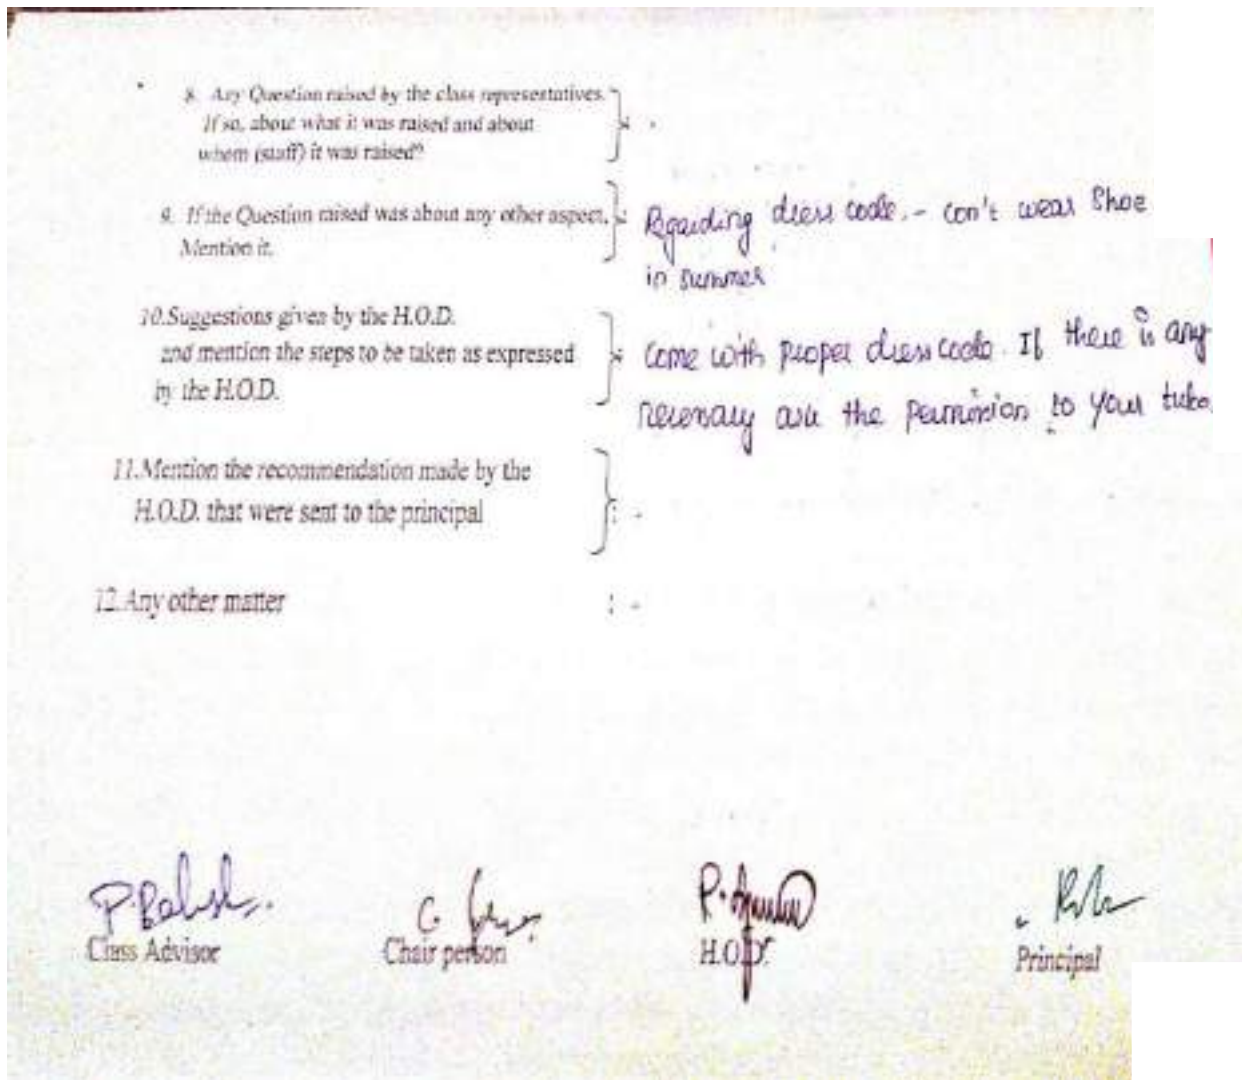 8. Any Question raised by the class representatives.
If so, about what it was raised and about : -
whom (staff) it was raised?
9. If the Question raised was about any other aspect, : Regarding dress code. - Can't wear Shoe
Mention it. in summer
10.Suggestions given by the H.O.D.
and mention the steps to be taken as expressed : Come with proper dress code. If there is any
by the H.O.D. necessary the permission to your
11.Mention the recommendation made by the
H.O.D. that were sent to the principal : -
12.Any other matter : -
Class Advisor Chair person H.O.D. Principal